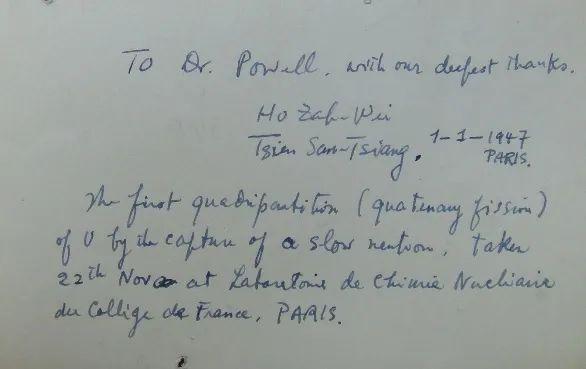 To Dr. Powell, with our deepest thanks.
Ho Zah-Wei
Tsien San-Tsiang. 1-1-1947
PARIS.
The first quadripartition (quaternary fission)
of U by the capture of a slow neutron, taken
22th Nov at Laboratoire de Chimie Nucléaire
du Collège de France, PARIS.